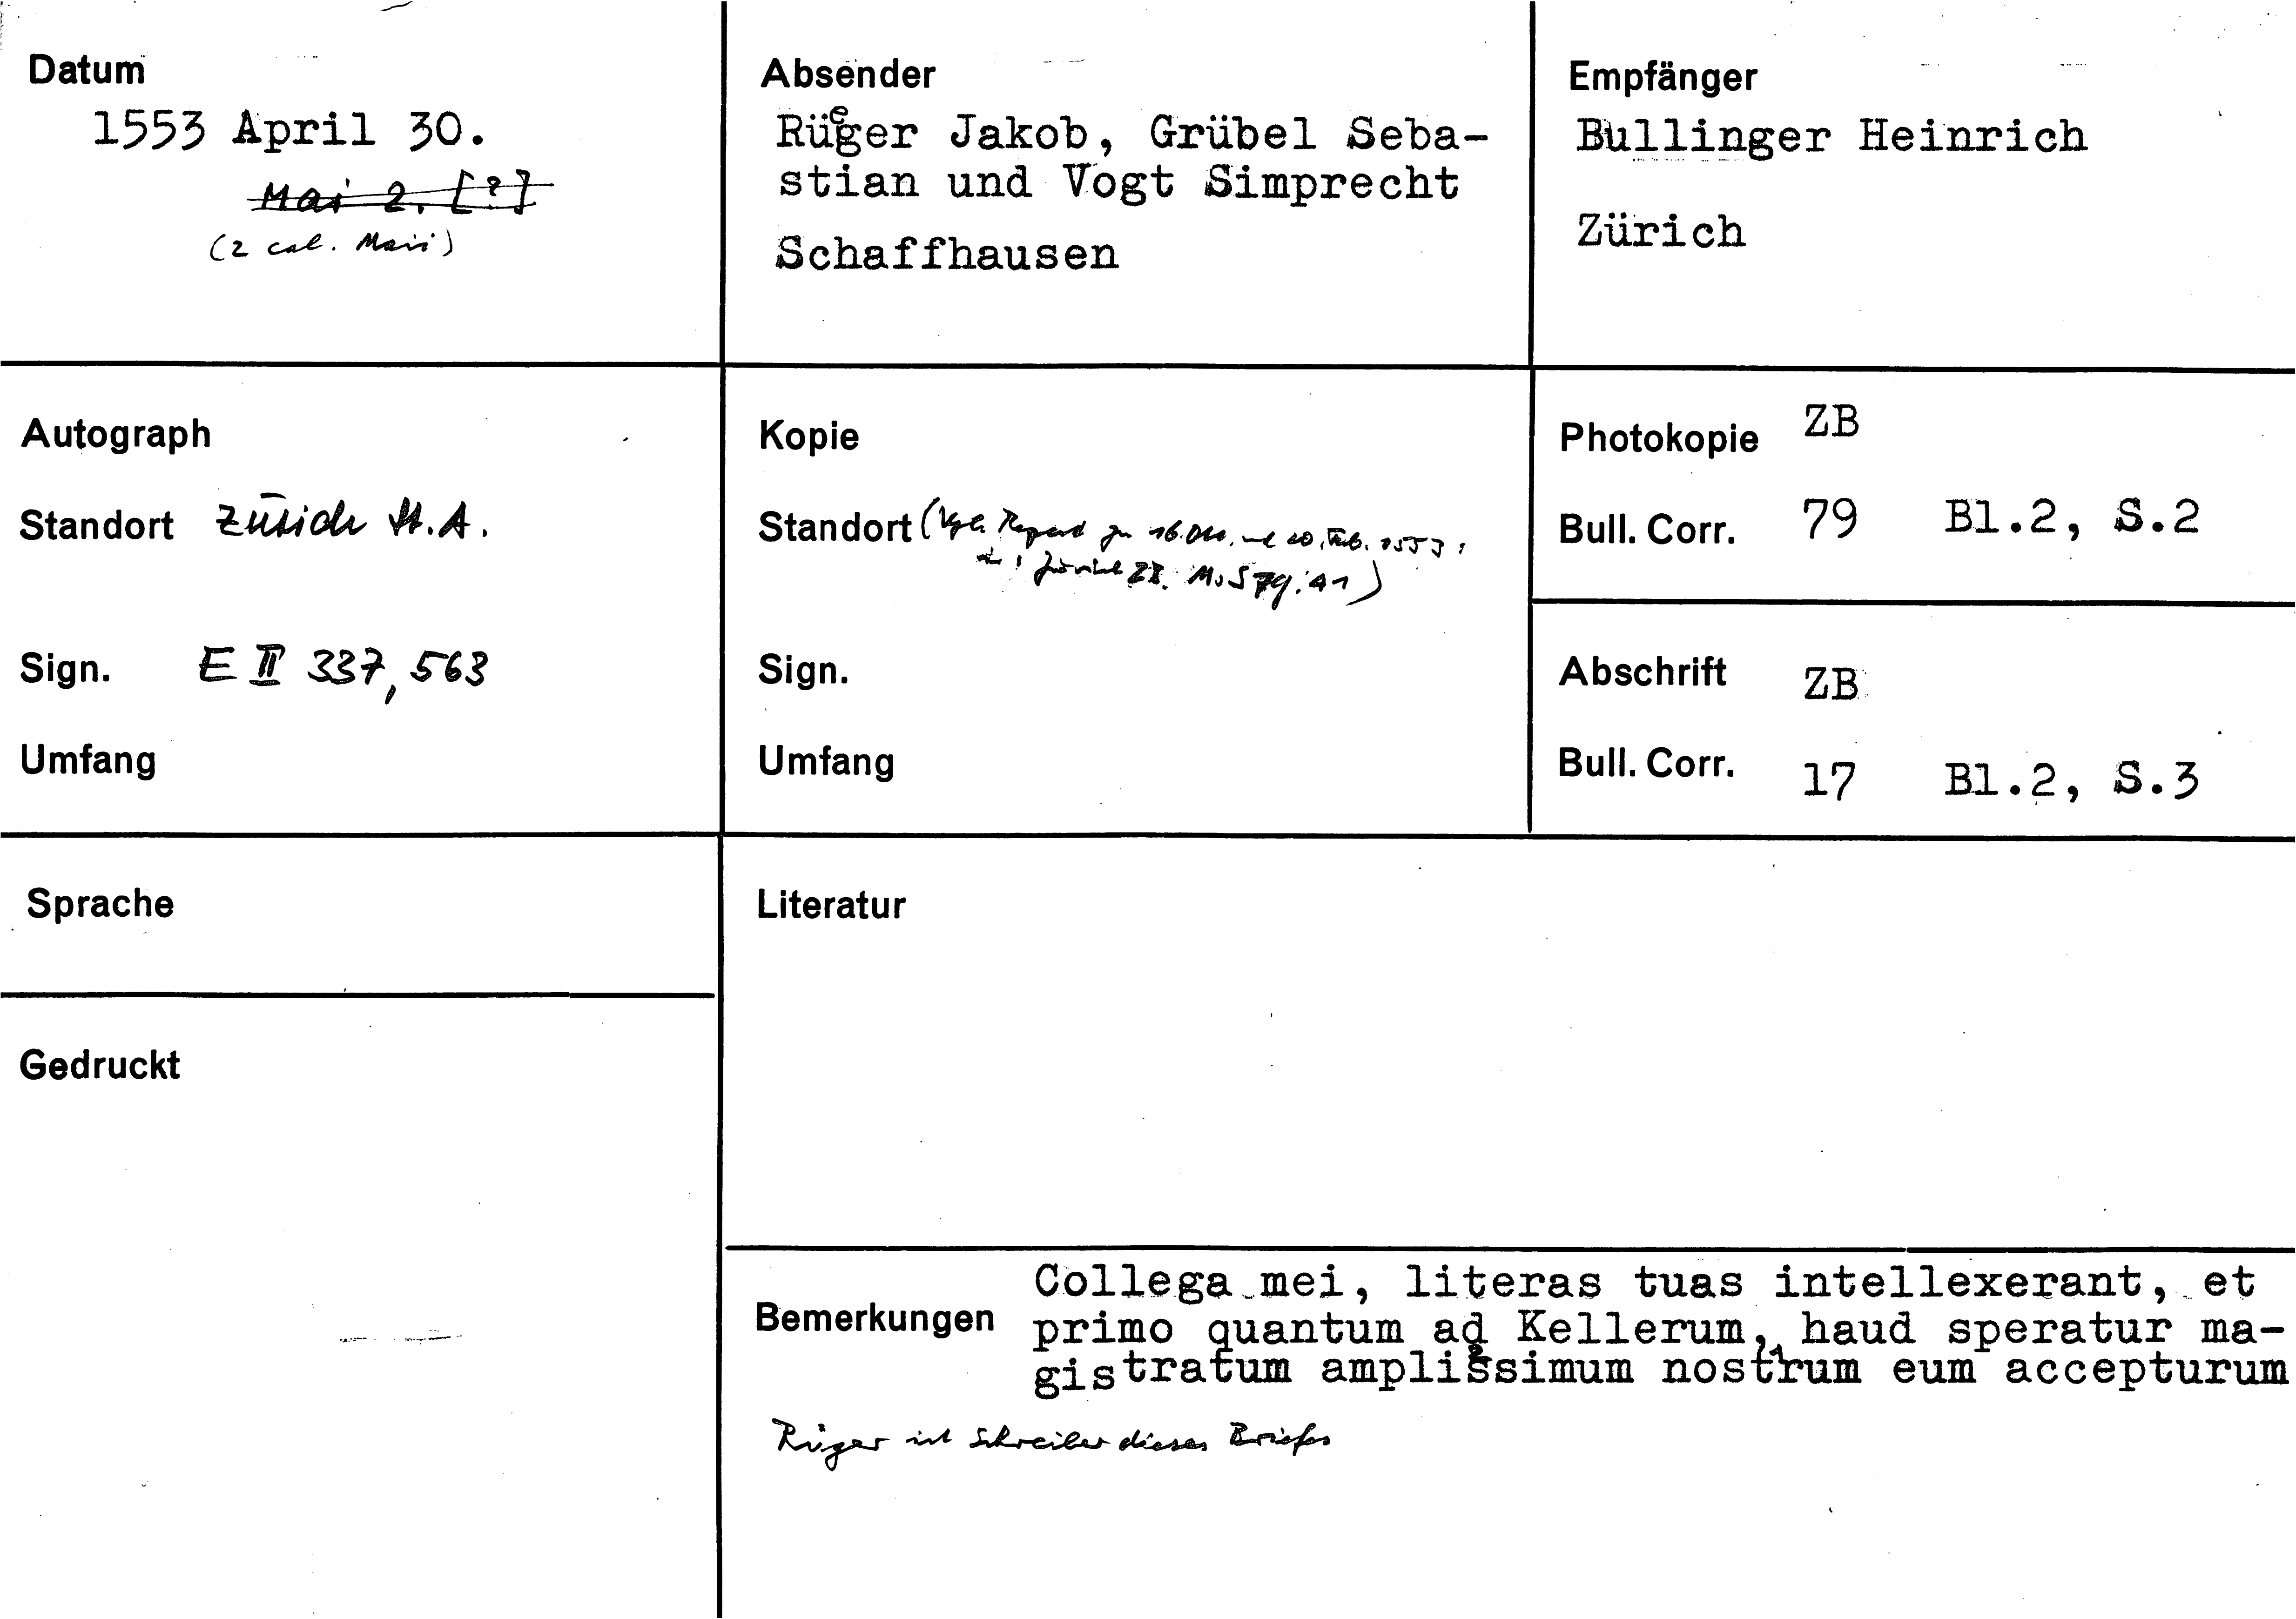 Datum
1553 April 30.
Mai 2. [?]
(2 cal. Maii)
Absender
Rüeger Jakob, Grübel Seba-
stian und Vogt Simprecht
Schaffhausen
Empfänger
Bullinger Heinrich
Zürich
Autograph
Standort Zürich St.A.
Sign. E II 337, 563
Umfang
Kopie
Standort (Vgl. zu 16. und 20. Feb. 1553,
Zürich ZB. Ms S 79. 41)
Sign.
Umfang
Photokopie ZB
Bull. Corr. 79 Bl.2, S.2
Abschrift ZB
Bull. Corr. 17 Bl.2, S.3
Sprache
Gedruckt
Literatur
Bemerkungen
Collega mei, literas tuas intellexerant, et
primo quantum ad Kellerum, haud speratur ma-
gistratum amplissimum nostrum eum accepturum
Rüger ist Schreiber dieses Briefes